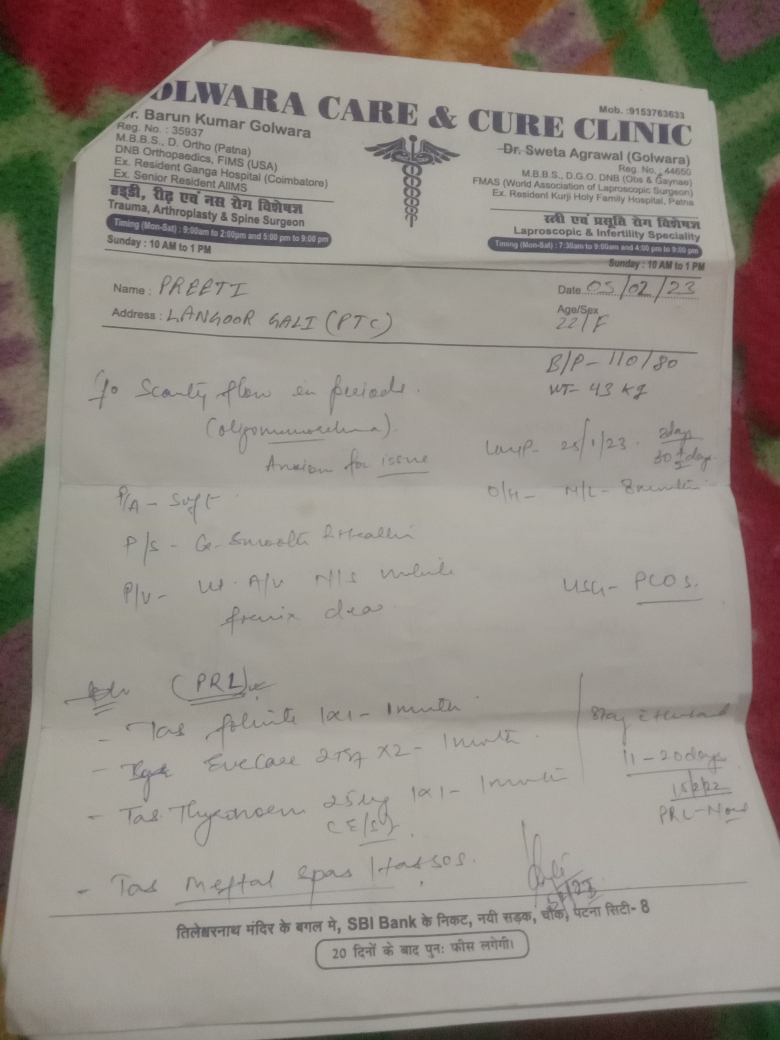 OLWARA CARE & CURE CLINIC
Mob. :9153763633
r. Barun Kumar Golwara
Reg. No. : 35937
M.B.B.S., D. Ortho (Patna)
DNB Orthopaedics, FIMS (USA)
Ex. Resident Ganga Hospital (Coimbatore)
Ex. Senior Resident AIIMS
हड्डी, रीढ़ एवं नस रोग विशेषज्ञ
Trauma, Arthroplasty & Spine Surgeon
Timing (Mon-Sat) : 9:00am to 2:00pm and 5:00 pm to 9:00 pm
Sunday : 10 AM to 1 PM
Dr. Sweta Agrawal (Golwara)
Reg. No. : 44650
M.B.B.S., D.G.O. DNB (Obs & Gynae)
FMAS (World Association of Laproscopic Surgeon)
Ex. Resident Kurji Holy Family Hospital, Patna
स्त्री एवं प्रसूति रोग विशेषज्ञ
Laproscopic & Infertility Speciality
Timing (Mon-Sat) : 7:30am to 9:00am and 4:00 pm to 9:00 pm
Sunday : 10 AM to 1 PM
Name : PREETI
Date 05/02/23
Address : LANGOOR GALI (PTC)
Age/Sex
22/F
B/P - 110/80
WT- 43 kg
Scanty flow in periods.
Anxious for issue
LMP- 25/1/23. 3day
30 days
P/A - Soft
O/H- M/L-
P/S - Cx- Smooth & Healthy
P/V- Ut A/V N/S mobile
fornix clear
USG- PCOS.
(PRL)
- Tab folinite 1x1 - 1month
- Eve Care 2TSF x2 - 1month.
- Tab. 25mg 1x1 - 1month
(E/S).
11 - 20 days
PRL-
- Tab Meftal spas 1tab SOS.
तिलेश्वरनाथ मंदिर के बगल मे, SBI Bank के निकट, नयी सड़क, चौक, पटना सिटी- 8
20 दिनों के बाद पुनः फीस लगेगी।